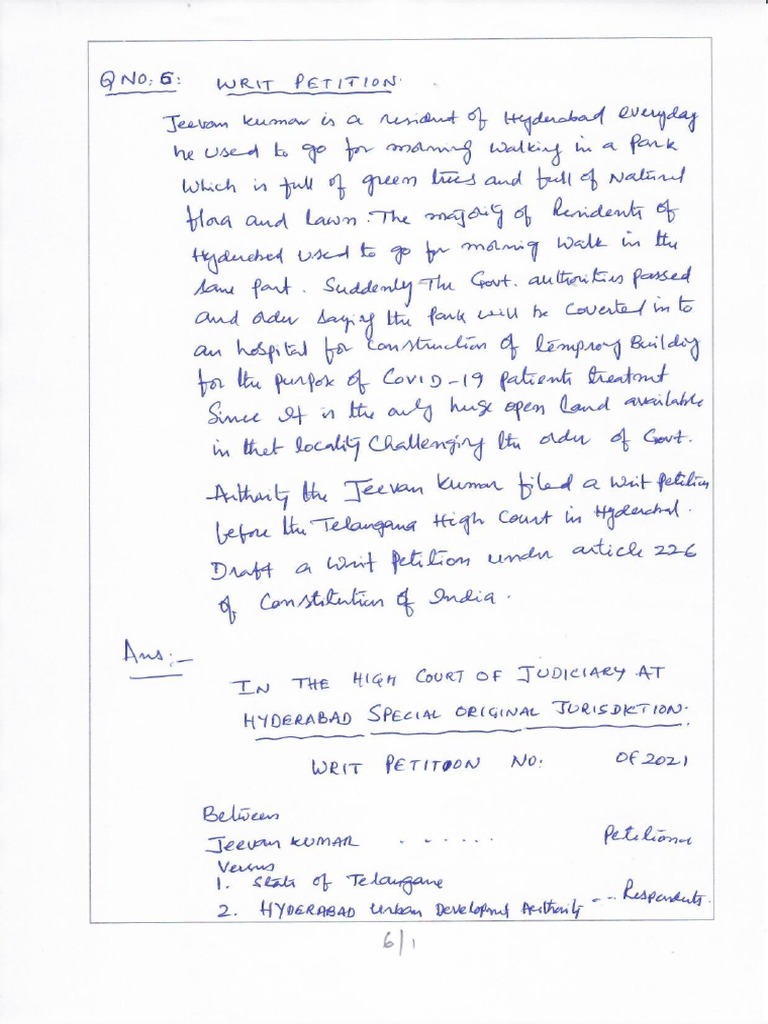 Q NO: 6: WRIT PETITION.
Jeevan Kumar is a resident of Hyderabad everyday
he used to go for morning walking in a park
which is full of green trees and full of Natural
flora and Lawn. The majority of Residents of
Hyderabad used to go for morning walk in the
same park. Suddenly The Govt. authorities passed
and order saying the park will be coverted in to
an hospital for construction of temprory Building
for the purpose of COVID-19 patients treatment
Since It is the only huge open land available
in that locality Challenging the order of Govt.
Authority the Jeevan Kumar filed a writ petition
before the Telangana High Court in Hyderabad.
Draft a writ Petition under article 226
of Constitution of India.
Ans:-
IN THE HIGH COURT OF JUDICIARY AT
HYDERABAD SPECIAL ORIGINAL JURISDICTION.
WRIT PETITOON NO: OF 2021
Between
JEEVAN KUMAR . - . . . . Petitioner
Versus
1. State of Telangane
2. HYDERABAD Urban Development Authority - - . Respondents.
6/1